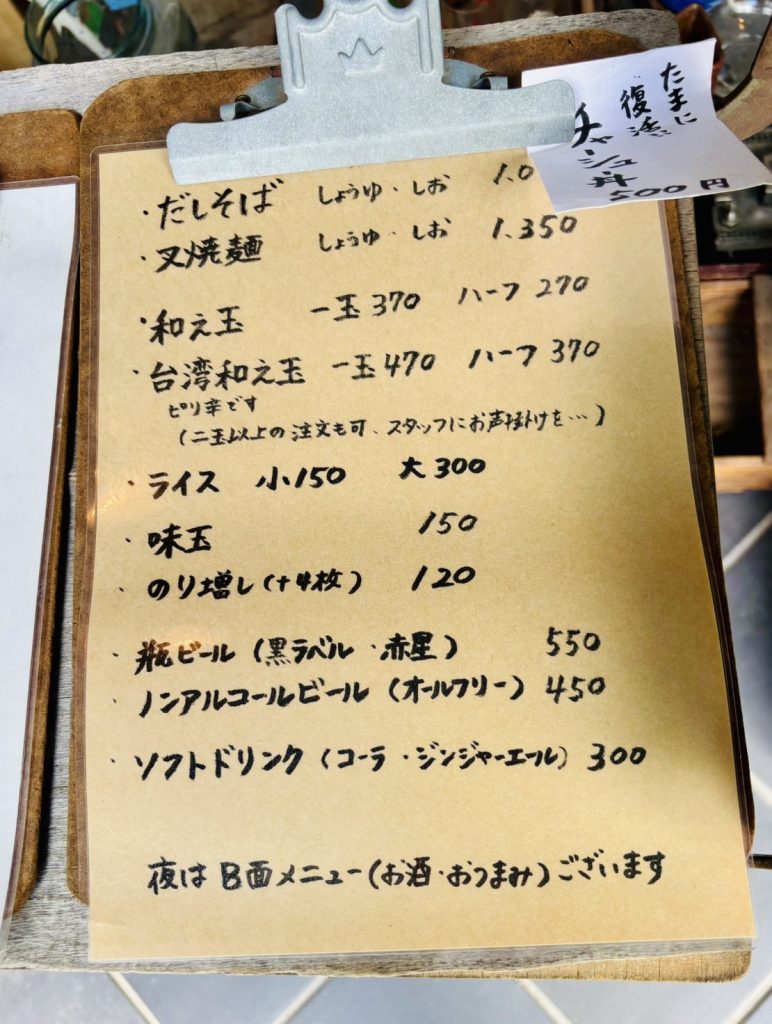 たまに
復活
チャーシュ丼
500円
・だしそば しょうゆ・しお 1.0
・叉焼麺 しょうゆ・しお 1.350
・和え玉 一玉370 ハーフ270
・台湾和え玉 一玉470 ハーフ370
ピリ辛です
(二玉以上の注文も可、スタッフにお声掛けを…)
・ライス 小150 大300
・味玉 150
・のり増し(+4枚) 120
・瓶ビール(黒ラベル・赤星) 550
・ノンアルコールビール(オールフリー) 450
・ソフトドリンク(コーラ・ジンジャーエール) 300
夜はB面メニュー(お酒・おつまみ)ございます